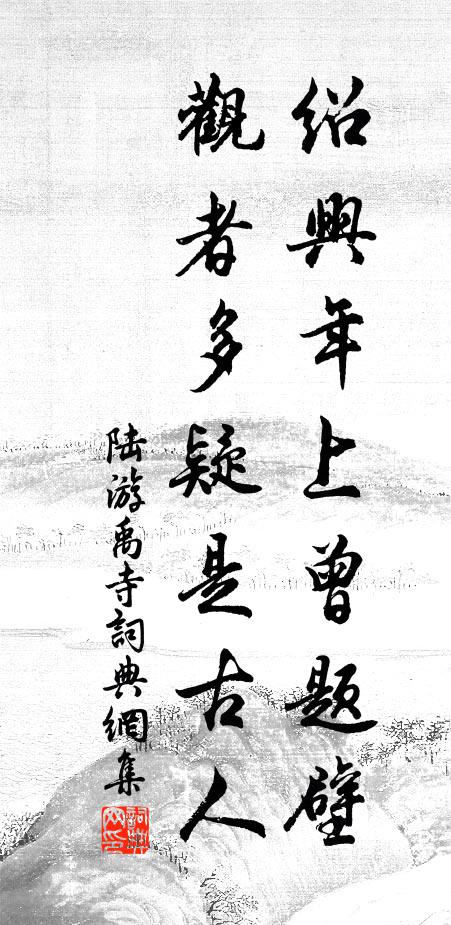 绍興年上曾题壁
觀者多疑是古人
陆游禹寺詞典網集
詞典网印